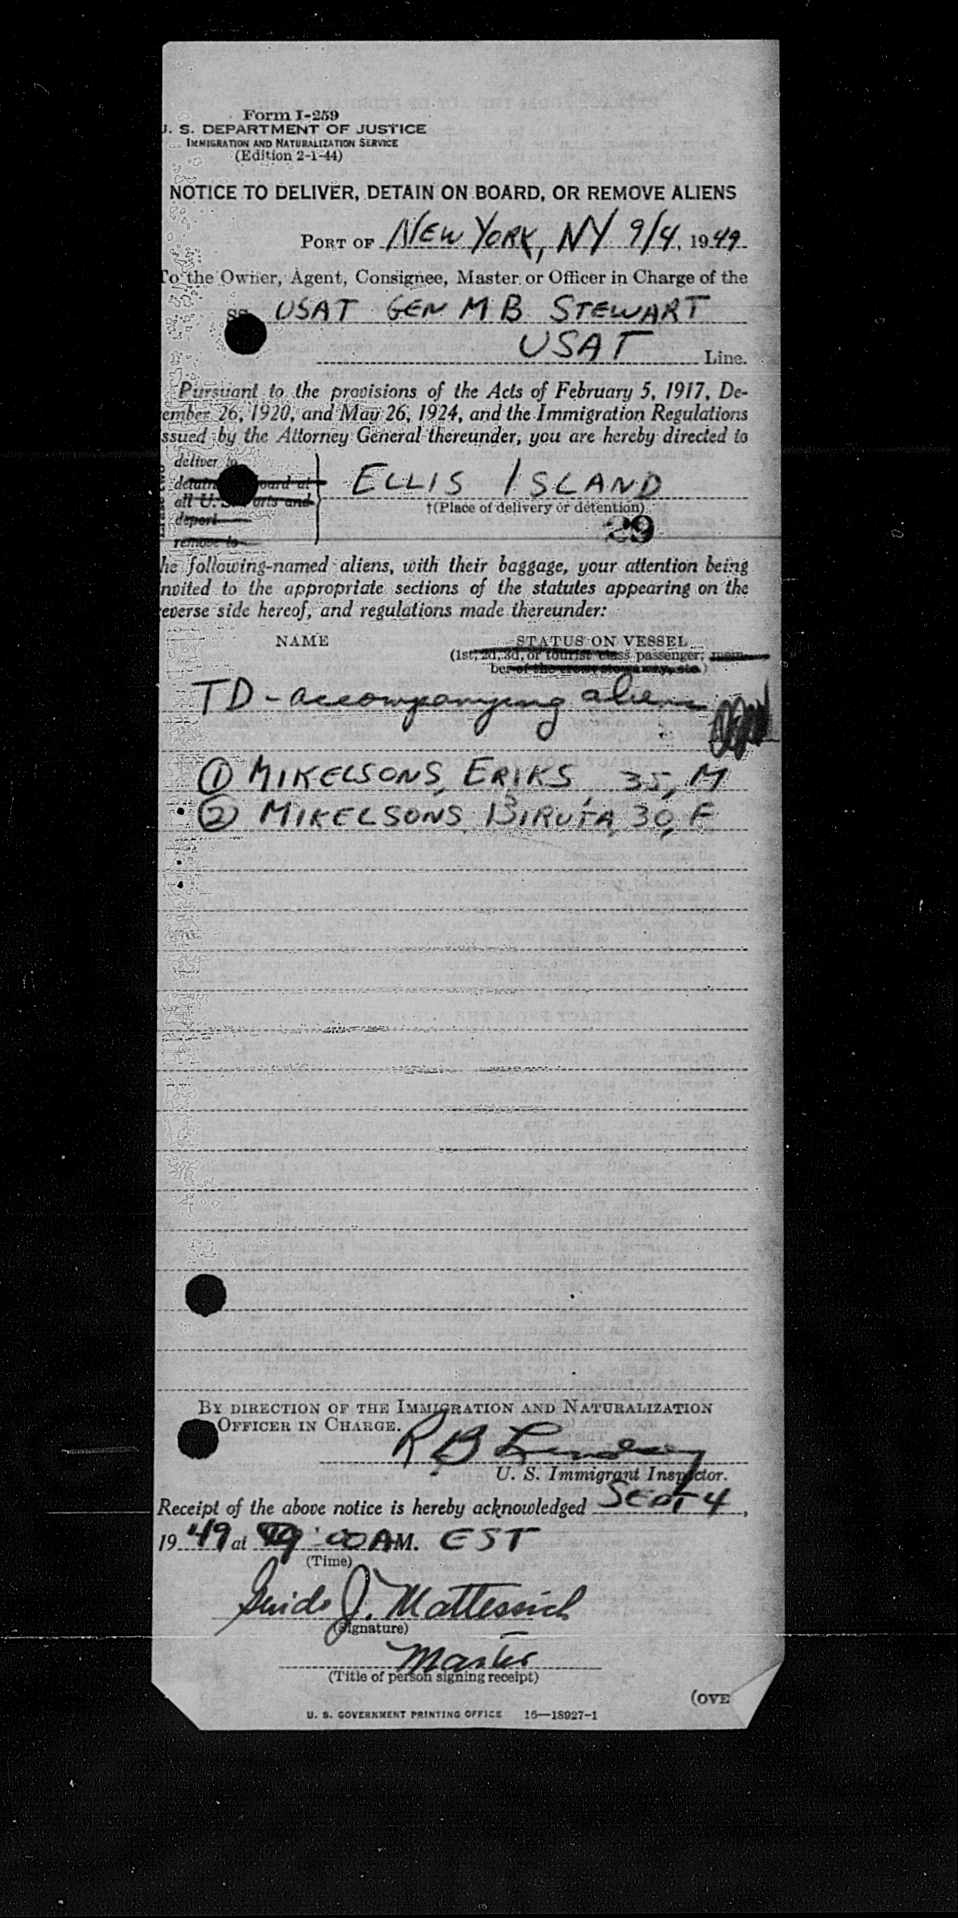 Form I-259
U. S. DEPARTMENT OF JUSTICE
IMMIGRATION AND NATURALIZATION SERVICE
(Edition 2-1-44)
NOTICE TO DELIVER, DETAIN ON BOARD, OR REMOVE ALIENS
PORT OF NEW YORK, NY 9/4, 1949
To the Owner, Agent, Consignee, Master or Officer in Charge of the
SS USAT GEN M B STEWART
USAT Line.
Pursuant to the provisions of the Acts of February 5, 1917, De-
cember 26, 1920, and May 26, 1924, and the Immigration Regulations
issued by the Attorney General thereunder, you are hereby directed to
deliver to
detain board at
all U. S. ports and
deport
remove to
ELLIS ISLAND
†(Place of delivery or detention)
29
he following-named aliens, with their baggage, your attention being
nvited to the appropriate sections of the statutes appearing on the
everse side hereof, and regulations made thereunder:
NAME STATUS ON VESSEL
(1st, 2d, 3d, or tourist class passenger, mem-
ber of the crew, stowaway, etc.)
TD - accompanying alien
① MIKELSONS, ERIKS 35, M
② MIKELSONS BIRUTA, 30, F
BY DIRECTION OF THE IMMIGRATION AND NATURALIZATION
OFFICER IN CHARGE.
R B Lindsay
U. S. Immigrant Inspector.
Receipt of the above notice is hereby acknowledged SEPT 4,
1949 at 9:00 AM. EST
(Time)
Guido J. Mattessich
(Signature)
Master
(Title of person signing receipt)
(OVE
U. S. GOVERNMENT PRINTING OFFICE 16—18927-1